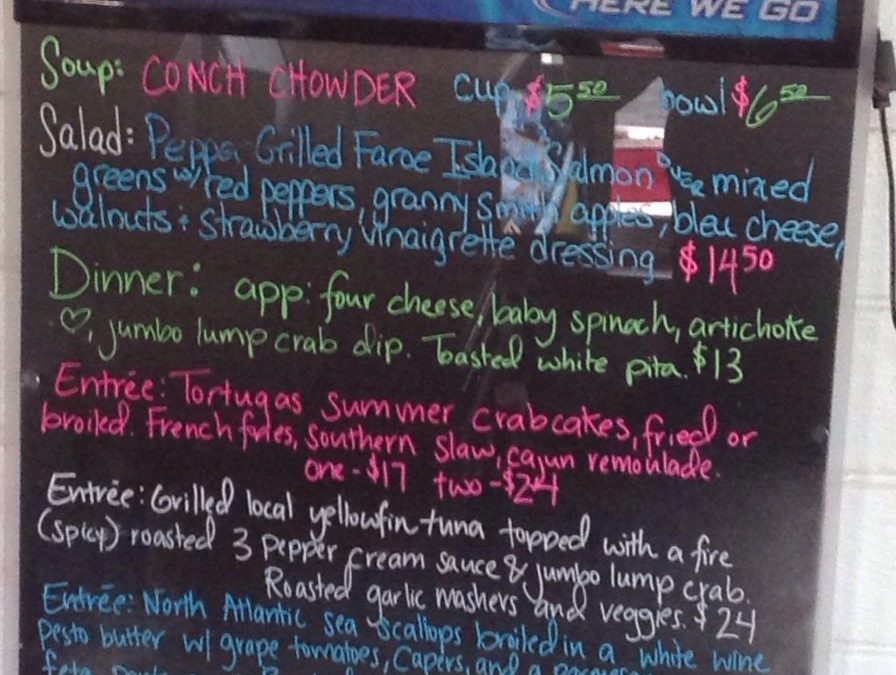 HERE WE GO
Soup: CONCH CHOWDER cup $5 50 bowl $6 50
Salad: Peppa Grilled Faroe Island Salmon over mixed
greens w/ red peppers, granny smith apples, bleu cheese,
walnuts + strawberry vinaigrette dressing $14 50
Dinner: app: four cheese, baby spinach, artichoke
♡, jumbo lump crab dip. Toasted white pita. $13
Entrée: Tortugas summer crabcakes, fried or
broiled. French fries, southern slaw, cajun remoulade.
one - $17 two - $24
Entrée: Grilled local yellowfin tuna topped with a fire
(spicy) roasted 3 pepper cream sauce & jumbo lump crab.
Roasted garlic mashers and veggies. $24
Entrée: North Atlantic sea scallops broiled in a white wine
pesto butter w/ grape tomatoes, capers, and a
feta